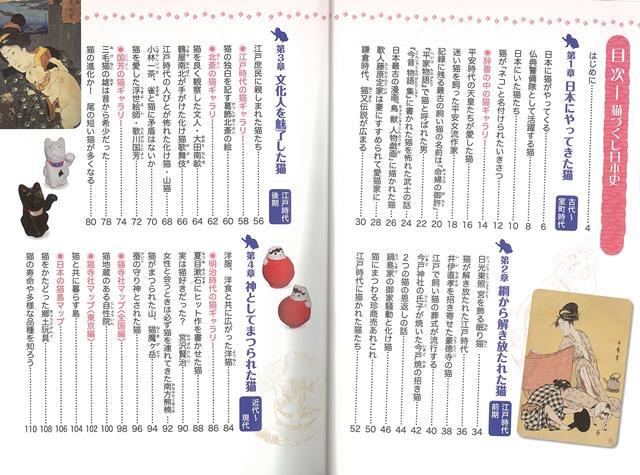 目次―猫づくし日本史
はじめに……4
第1章 日本にやってきた猫 古代〜室町時代
日本に猫がやってくる……6
仏典警備隊として活躍する猫……8
日本にいた猫たち……10
猫が“ネコ”と名付けられたいきさつ……12
●辞書の中の猫ギャラリー……14
平安時代の天皇たちが愛した猫……16
迷い猫を飼った平安女流作家……18
記録に残る最古の飼い猫の名前は「命婦の御許」……20
『平家物語』で猫と呼ばれた男……22
『今昔物語集』に書かれた猫を怖れた武士の話……24
日本最古の漫画『鳥獣人物戯画』に描かれた猫……26
歌人藤原定家は妻にすすめられて愛猫家に……28
鎌倉時代、猫又伝説が広まる……30
第2章 綱から解き放たれた猫 江戸時代前期
日光東照宮を飾る眠り猫……34
猫が解き放たれた江戸時代……36
井伊直孝を招き寄せた豪徳寺の猫……38
江戸で飼い猫の葬式が流行する……40
今戸神社の氏子が焼いた今戸焼の招き猫……42
2つの猫の恩返しの話……44
鍋島家の御家騒動と化け猫……46
猫にまつわる珍商売あれこれ……50
江戸時代に描かれた猫……52
第3章 文化人を魅了した猫 江戸時代後期
江戸庶民に親しまれた猫たち……56
●江戸時代の猫ギャラリー……58
猫の独白を記す葛飾北斎の絵……60
●北斎の猫ギャラリー……62
猫を良く観察した文人・大田南畝……64
鶴屋南北が手がけた化け猫歌舞伎……66
江戸時代の人びとが怖れた化け猫・山猫……68
小林一茶、雀と猫に矛盾はないか……70
猫を愛した浮世絵師・歌川国芳……72
●国芳の猫ギャラリー……74
三毛猫の雄は昔から希少だった……78
猫の進化か! 尾の短い猫が多くなる……80
第4章 神としてまつられた猫 近代〜現代
洋服、洋食と共に広がった洋猫……84
●明治時代の猫ギャラリー……86
夏目漱石にヒット作を書かせた猫……88
実は猫好きだった? 宮沢賢治……90
女性と会うときは必ず猫を連れてきた南方熊楠……92
猫がまつられた山、猫魔ヶ岳……94
蚕の守り神とされた猫……96
●猫寺社マップ《全国編》……98
猫地蔵のある自性院……100
●猫寺社マップ《東京編》……102
猫と共に暮らす島……104
●日本の猫島マップ……106
猫をかたどった郷土玩具……108
猫の寿命や多様な品種を知ろう……110